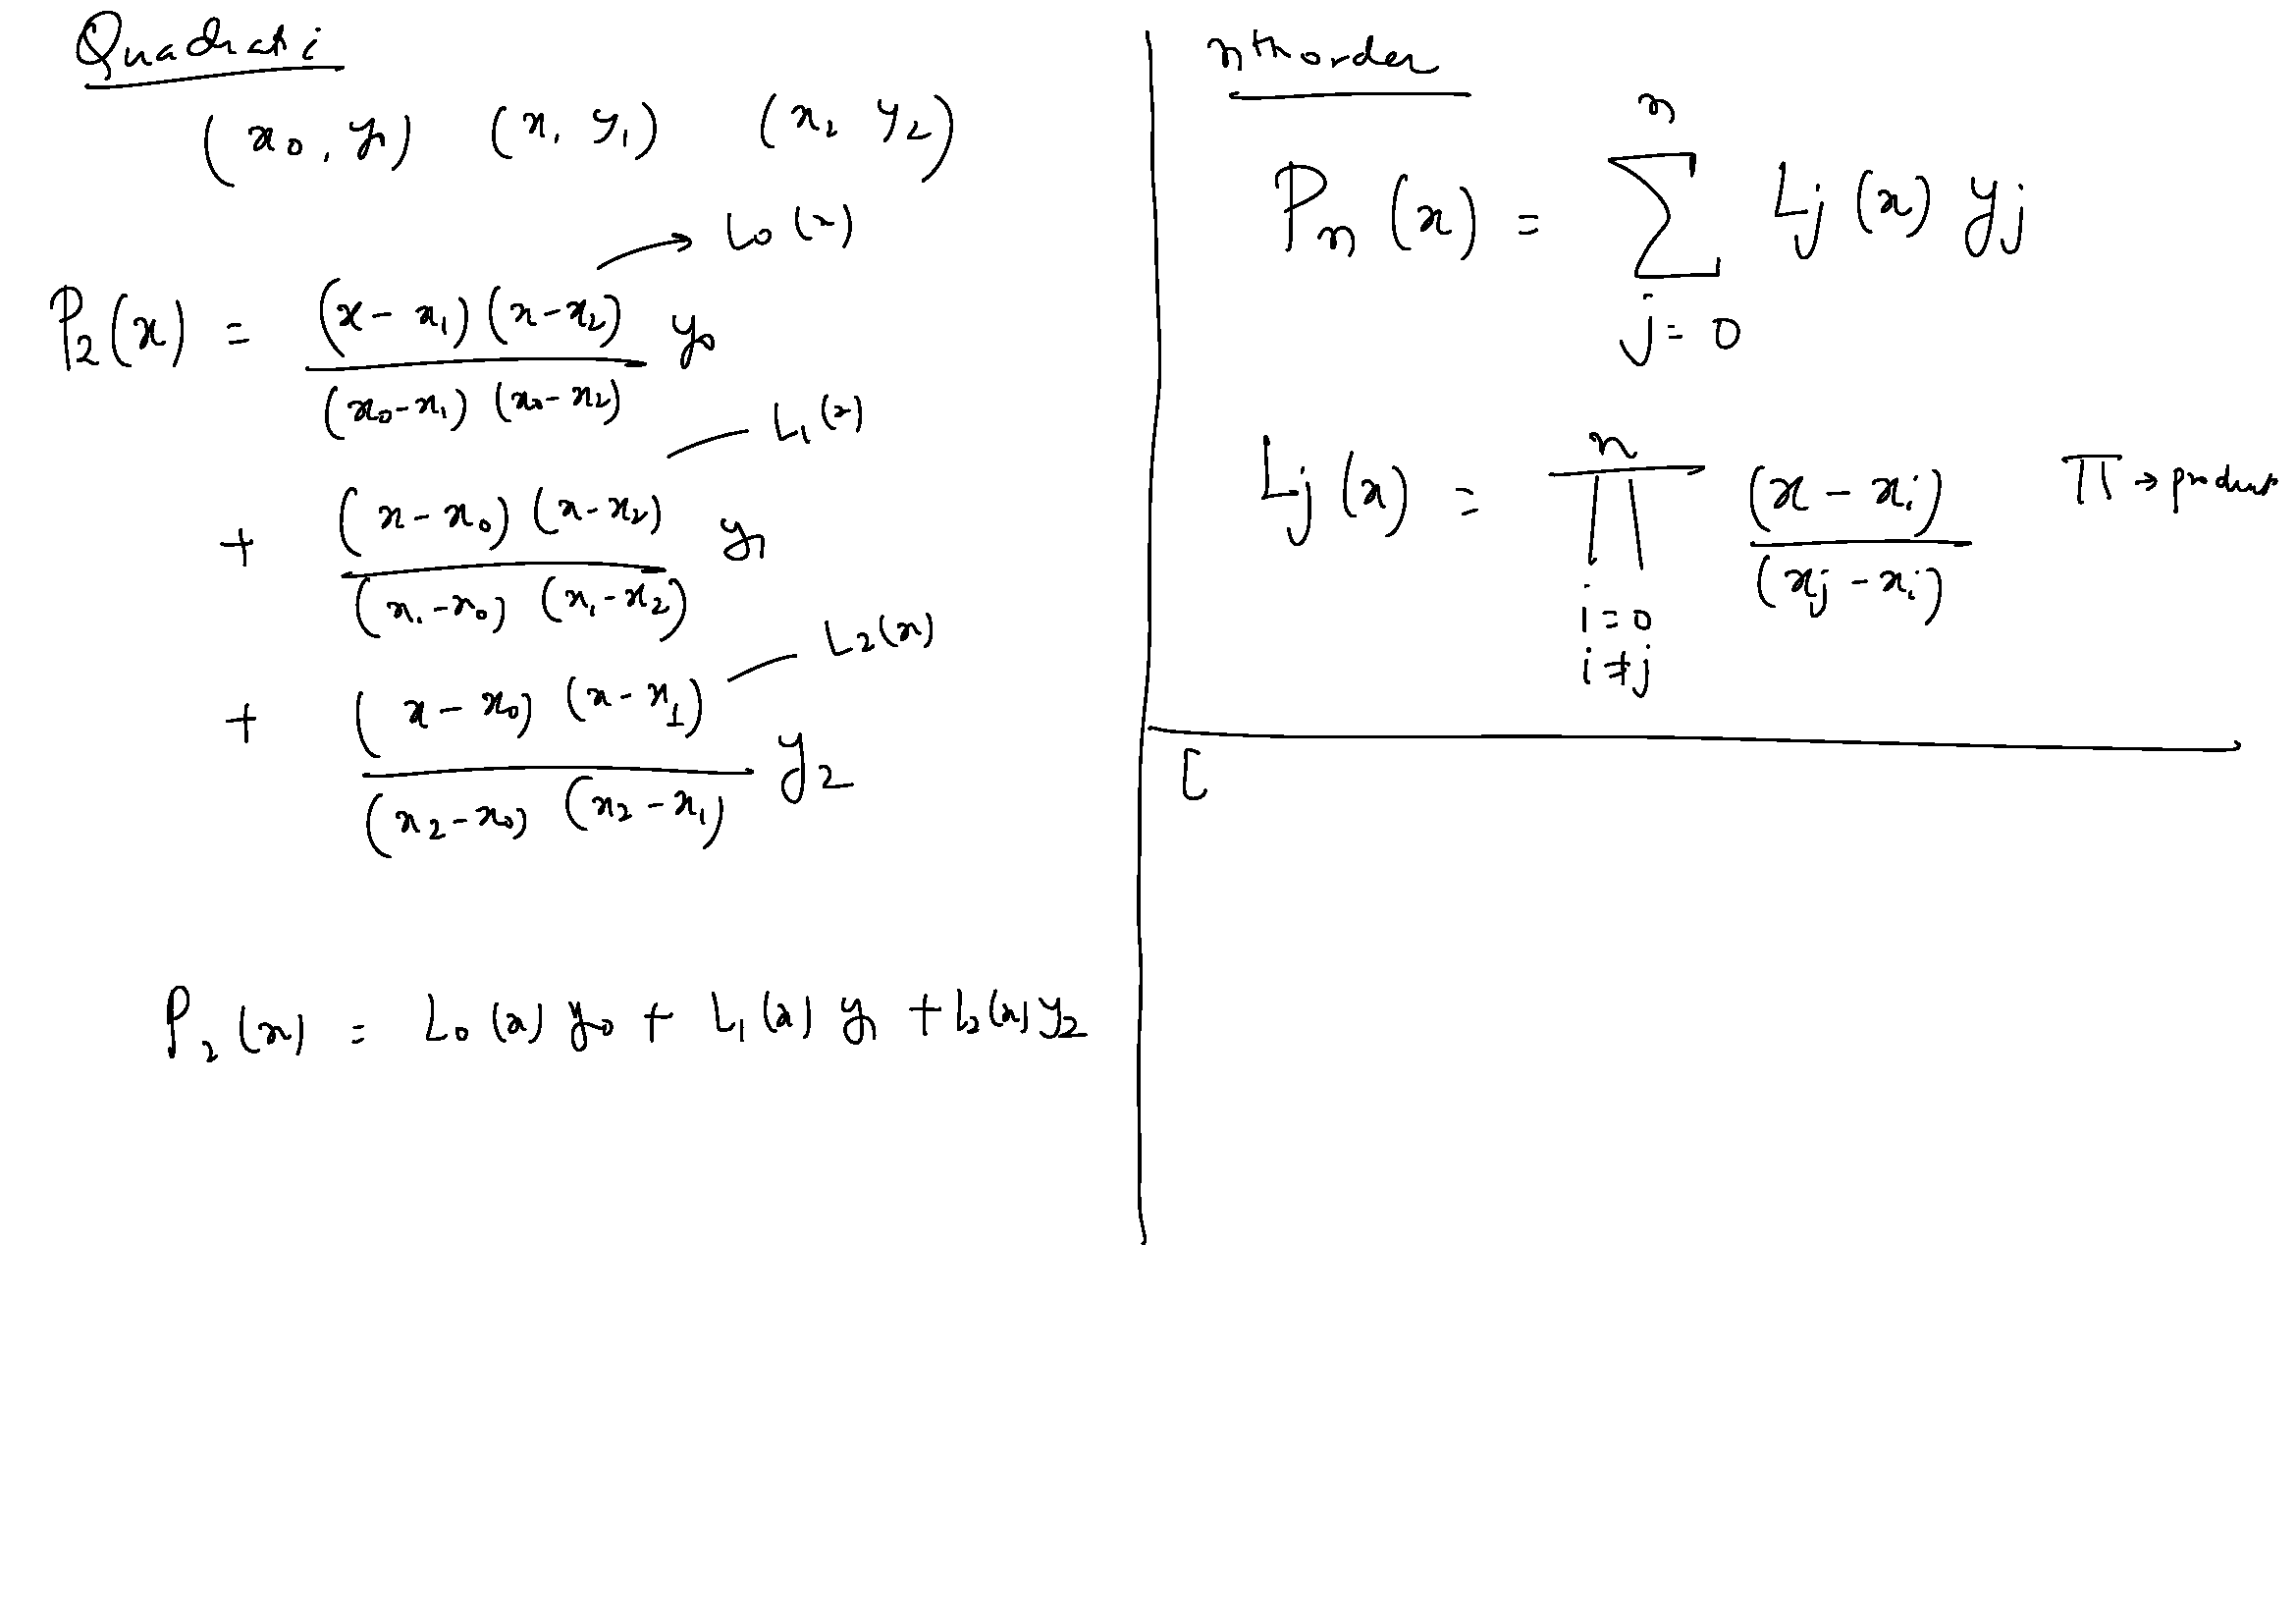 Quadrati
(x₀, y₁) (x₁ y₁) (x₂ y₂)
→ L₀(x)
P₂(x) = (x-x₁)(x-x₂) / (x₀-x₁)(x₀-x₂) y₀
L₁(x)
+ (x-x₀)(x-x₂) / (x₁-x₀)(x₁-x₂) y₁
L₂(x)
+ (x-x₀)(x-x₁) / (x₂-x₀)(x₂-x₁) y₂
P₂(x) = L₀(x) y₀ + L₁(x) y₁ + L₂(x) y₂
nth order
n
Pn(x) = Σ Lj(x) yj
j=0
n
Lj(x) = Π (x-xi) / (xj-xi) Π → product
i=0
i≠j
[